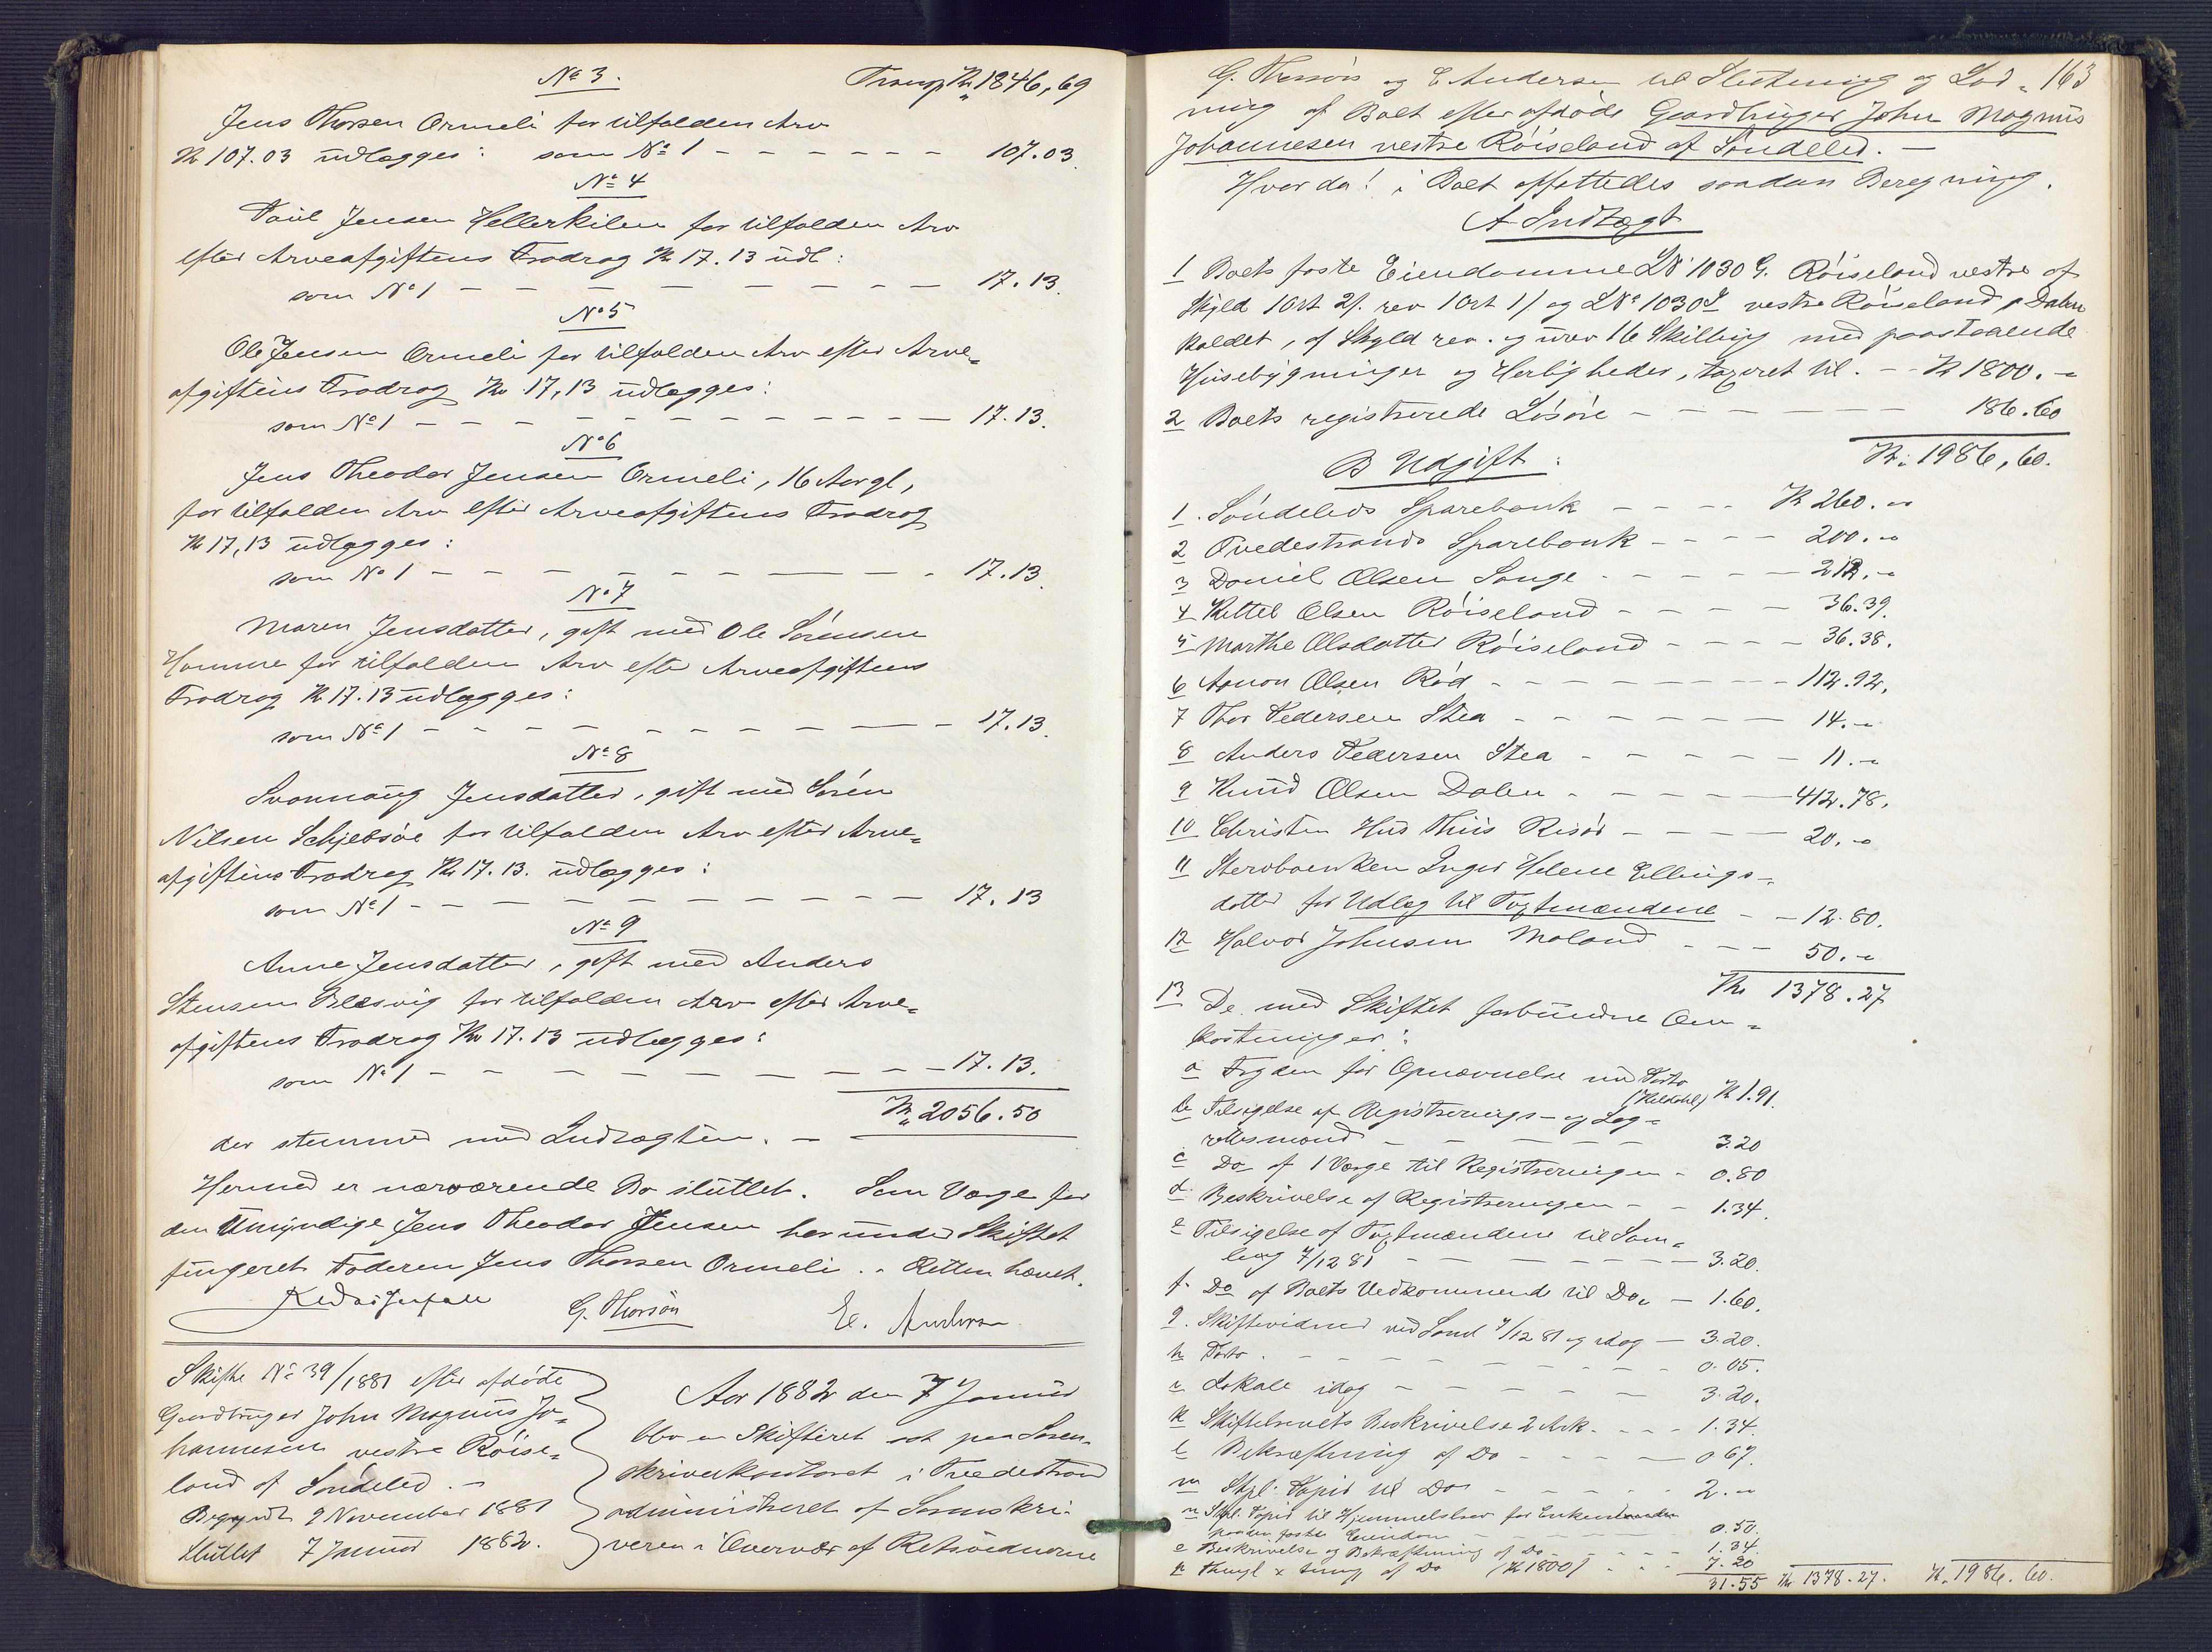 No 3.
Transp Kr 1846,69
Jens Thorsen Ormeli for tilfalden Arv
Kr 107.03 udlægges: som No 1 - - - - - - 107.03
No 4
Paul Jensen Hellerkilen for tilfalden Arv
efter Arveafgiftens Fradrag Kr 17.13 udl:
som No 1 - - - - - - - 17.13.
No 5
Ole Jensen Ormeli for tilfalden Arv efter Arve=
afgiftens Fradrag Kr 17,13 udlægges:
som No 1 - - - - - - - - - 17.13.
No 6
Jens Theodor Jensen Ormeli, 16 Aar gl,
for tilfalden Arv efter Arveafgiftens Fradrag
Kr 17,13 udlægges:
som No 1 - - - - - - - - 17.13.
No 7
Maren Jensdatter, gift med Ole Sørensen
Homme for tilfalden Arv efter Arveafgiftens
Fradrag Kr 17.13 udlægges:
som No 1 - - - - - - - - 17.13.
No 8
Svannaug Jensdatter, gift med Søren
Nilsen Schjebsøe for tilfalden Arv efter Arve=
afgiftens Fradrag Kr 17.13. udlægges:
som No 1 - - - - - - - - 17.13
No 9
Anne Jensdatter, gift med Anders
Stensen for tilfalden Arv efter Arve=
afgiftens Fradrag Kr 17.13 udlægges:
som No 1 - - - - - - - - 17.13.
Kr 2056.50
der stemmer med Indtægten. -
Hermed er nærværende Bo sluttet. Som Værge for
den Umyndige Jens Theodor Jensen har under Skiftet
fungeret Faderen Jens Thorsen Ormeli. - Retten hævet.
G. Thorsøn E. Andersen
Skifte No 39/1881 efter afdøde
Gaardbruger John Magnus Jo=
hannesen vestre Røise=
land af Søndeled. -
Begyndt 9 November 1881
Sluttet 7 Januar 1882.
Aar 1882 den 7 Januar
blev en Skifteret sat paa Soren=
skriverkontoret i Tvedestrand
administreret af Sorenskri=
veren i Overvær af Retsvidnerne
163
G. Thorsøn og E Andersen til Slutning og Lod=
ning af Boet efter afdøde Gaardbruger John Magnus
Johannesen vestre Røiseland af Søndeled. -
Hvorda! i Boet affattedes saadan Beregning.
A Indtægt
1 Boets faste Eiendomme LN 1030 G. Røiseland vestre af
Skyld 1 Ort 2/. rev 1 Ort 1/ og LNo 1030 vestre Røiseland, Dalen
kaldet, af Skyld rev. og urev 16 Skilling med paastaaende
Husebygninger og Herligheder, taxeret til. - - Kr 1800. -
2 Boets registrerede Løsøre - - - - - - 186.60
Kr. 1986,60.
B Udgift:
1. Søndeleds Sparebank - - - - Kr 260. -
2 Tvedestrands Sparebank - - - - 200. -
3 Daniel Olsen Songe - - - - - 212. -
4 Kittel Olsen Røiseland - - - - 36.39.
5 Marthe Olsdatter Røiseland - - - - 36.38.
6 Aanon Olsen Rød - - - - - - 112.92.
7 Thor Pedersen Stea - - - - - - 14. -
8 Anders Pedersen Stea - - - - - 11. -
9 Knud Olsen Dalen - - - - - 412.78.
10 Christen Hus Thiis Risør - - - - 20. -
11 Stervboenken Inger Helene Ellings=
datter for Udlæg til Taxtmændene - - 12.80.
12 Halvor Johnsen Moland - - - 50. -
Kr 1378.27
13 De med Skiftet forbundne Om=
kostninger:
a Fogden for Opnævnelse med Porto
Kr 1.91.
b Tilsigelse af Registrerings- og Lag=
rettesmænd - - - - - - 3.20
c Do af 1 Værge til Registreringen - 0.80
d Beskrivelse af Registreringen - - 1.34.
e Tilsigelse af Taxtmændene til Sam=
ling 7/12 81 - - - - - - 3.20.
f. Do af Boets Vedkommende til Do - 1.60.
g. Skiftevidner ved Saml 7/12 81 og idag - 3.20.
h Porto. - - - - - - - 0.05.
i Lokale idag - - - - - - 3.20.
k Skiftebrevets Beskrivelse 2 Ark. - - - 1.34.
l Bekræftning af Do - - - - 0 67.
m Stpl. Papir til Do - - - - - 2. -
n Stpl. Papir til Hjemmelsbrev for Enken
paa den faste Eiendom - - - - 0.50.
o Beskrivelse og Bekræftning af Do - - - - 1.34.
p Thingl af Do (Kr 1800) - - 7.20
31.55 Kr 1378.27. Kr. 1986.60.